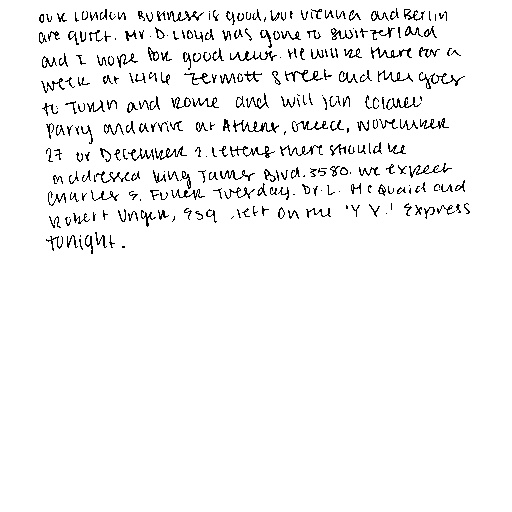 our London Business is good, but Vienna and Berlin
are quiet. Mr. D. Lloyd has gone to Switzerland
and I hope for good news. He will be there for a
week at 1496 Zermott Street and then goes
to Turin and Rome and will join Colonel
Parry and arrive at Athens, Greece, November
27 or December 2. Letters there should be
addressed King James Blvd. 3580. We expect
Charles E. Fuller Tuesday. Dr. L. McQuaid and
Robert Unger, Esq., left on the 'Y.X.' Express
tonight.